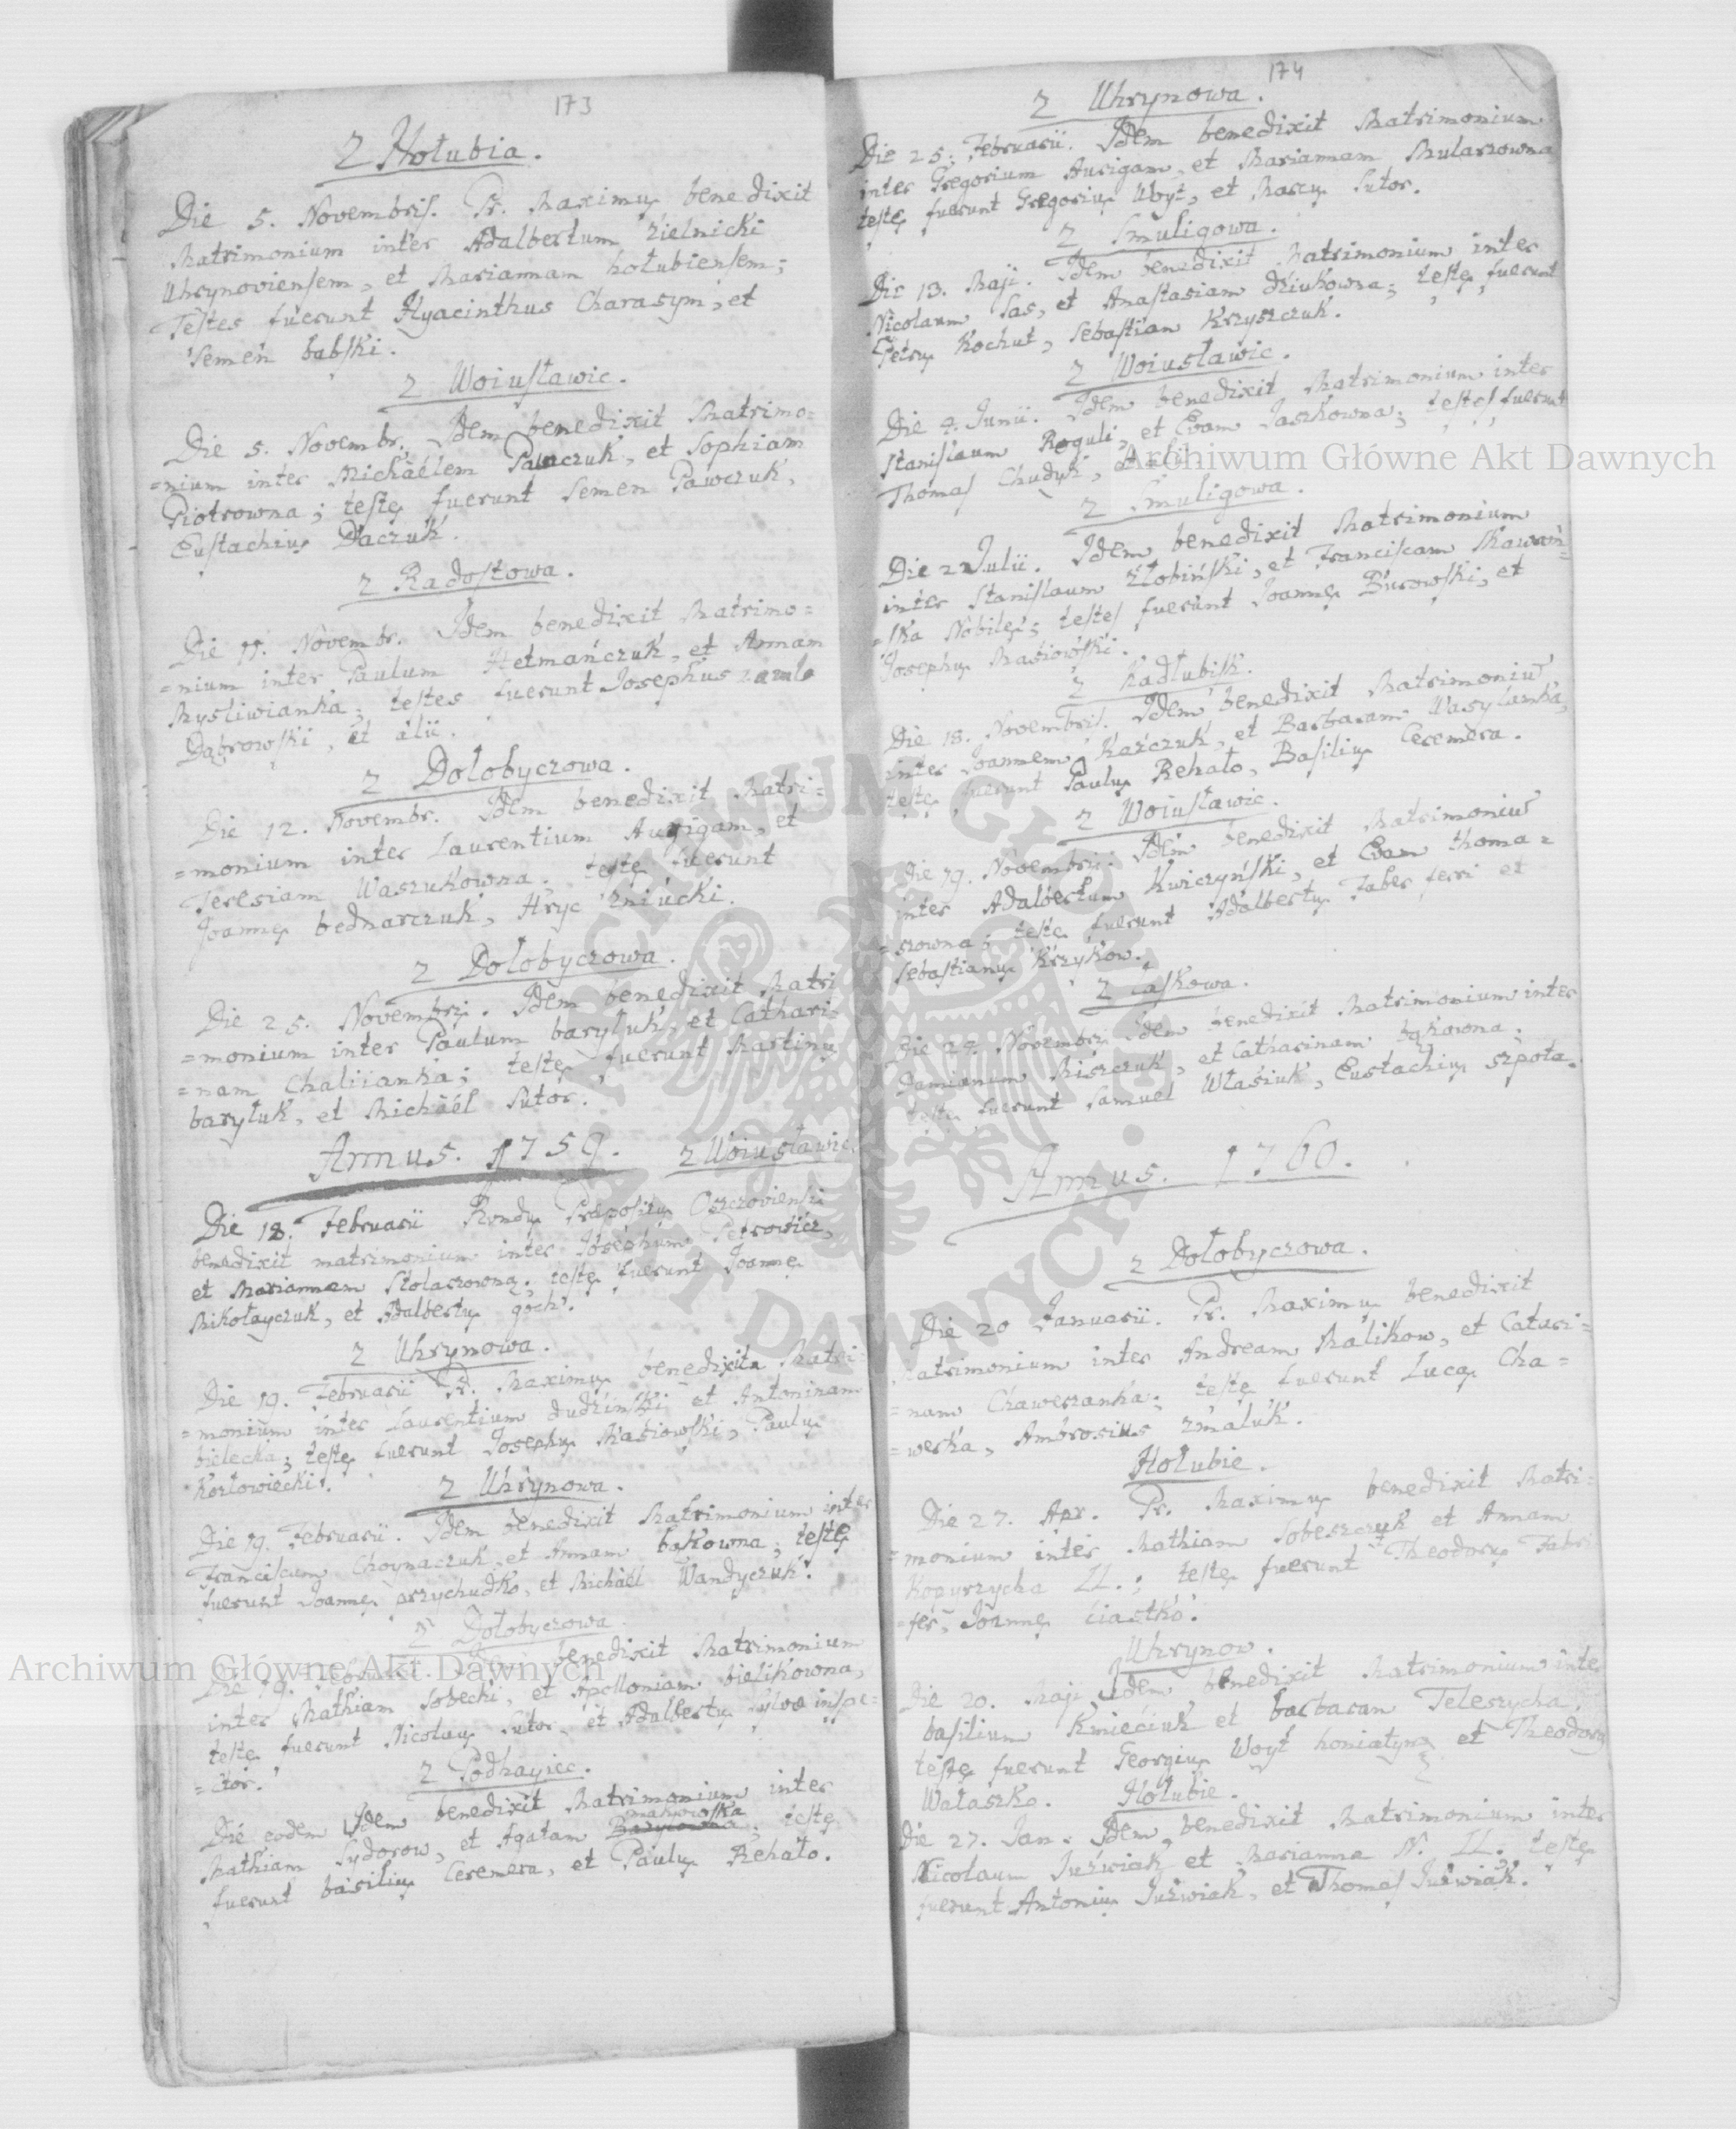 173
Z Hołubia.
Die 5. Novembris. Pr. Maximus benedixit
Matrimonium inter Adalbertum Zielnicki
Uhrynoviensem, et Mariannam hołubiensem;
Testes fuerunt Hyacinthus Charasym, et
Semen babski.
Z Woiusławic.
Die 5. Novembr. Idem benedixit Matrimo=
=nium inter Michaëlem Pawczuk, et Sophiam
Piotrowna; testes fuerunt Semen Pawczuk,
Eustachius Daczuk.
Z Radostowa.
Die 11. Novembr. Idem benedixit Matrimo=
=nium inter Paulum Hetmańczuk, et Annam
Mysliwianka; testes fuerunt Josephus
Dąbrowski, et alii.
Z Dołobyczowa.
Die 12. Novembr. Idem benedixit Matri=
=monium inter Laurentium Aurigam, et
Teresiam Waszukowna; testes fuerunt
Joannes bednarczuk, Hryc Zniucki.
Z Dołobyczowa.
Die 25. Novembris. Idem benedixit Matri
=monium inter Paulum baryluk, et Cathari=
=nam Chaliianka; testes fuerunt Martinus
baryluk, et Michaël Sutor.
Annus. 1759. Z Woiusławic.
Die 18. Februarii Rndus Præpositus Oszczoviensis
benedixit matrimonium inter Josephum Petrowicz,
et Mariannam Stolaszowna; testes fuerunt Joannes
Mikołayczuk, et Adalbertus goch.
Z Uhrynowa.
Die 19. Februarii Pr. Maximus benedixit Matri=
=monium inter Laurentium dudziński et Antoninam
bielecka; testes fuerunt Josephus Masiowski, Paulus
Kozłowiecki.
Z Uhrynowa.
Die 19. Februarii. Idem benedixit Matrimonium inter
Franciscum Choynaczuk et Annam bąkowna; testes
fuerunt Joannes przychudko, et Michaël Wandyczuk.
Z Dołobyczowa.
Die 19. benedixit Matrimonium
inter Mathiam Sobecki, et Apolloniam bielikowna,
testes fuerunt Nicolaus Sutor, et Adalbertus sylvæ inspe=
=ctor.
Z Podhayiec.
Die eodem Idem benedixit Matrimonium inter
Mathiam Sydorow, et Agatam makowska; testes
fuerunt basilius Ceremera, et Paulus Rehało.
174
Z Uhrynowa.
Die 25. Februarii. Idem benedixit Matrimonium
inter Gregorium Aurigam, et Mariannam Mularzowna
testes fuerunt Gregorius Woyt, et Marcus Sutor.
Z Smuligowa.
Die 13. Maji. Idem benedixit Matrimonium inter
Nicolaum Sas, et Anastasiam dziukowna; testes fuerunt
Petrus Kochut, Sebastian Krzyszczuk.
Z Woiusławic.
Die 4. Junii. Idem benedixit Matrimonium inter
Stanislaum Roguli, et Evam Jaszkowna; testes fuerunt
Thomas Chudyk, et alii.
Z Smuligowa.
Die 22 Julii. Idem benedixit Matrimonium
inter Stanislaum Złobiński, et Franciscam Skawrań=
=ska Nobiles; testes fuerunt Joannes Burowski, et
Josephus Masiowski.
Z Kadłubisk.
Die 18. Novembris. Idem benedixit Matrimoniu
inter Joannem Karczuk, et Barbaram Wasylanka,
testes fuerunt Paulus Rehało, Basilius Ceremera.
Z Woiusławic.
Die 19. Novembris. Idem benedixit Matrimoniu
inter Adalbertum Kwiczyński, et Evam thoma=
=szowna; testes fuerunt Adalbertus Faber ferri et
Sebastianus Krzykow.
Z Łaskowa.
Die 24. Novembris Idem benedixit Matrimonium inter
Damianum Miszczuk, et Catharinam bąkowna.
testes fuerunt Samuel Własiuk, Eustachius Szpota.
Annus. 1760.
Z Dołobyczowa.
Die 20 Januarii. Pr. Maximus benedixit
Matrimonium inter Andream Malikow, et Catari=
=nam Chawerzanka; testes fuerunt Lucas Cha=
=werka, Ambrosius Zmaluk.
Hołubie.
Die 27. Apr. Pr. Maximus benedixit Matri=
=monium inter Mathiam Sobeszczuk et Annam
Kopyrzycha LL.; testes fuerunt Theodorus Fabri
=fer, Joannes Ciastko.
Uhrynow.
Die 20. Maji Idem benedixit Matrimonium inter
basilium Kmieciuk et barbaram Teleszycha,
testes fuerunt Georgius Woyt honiatyn et Theodorus
Wataszko.
Hołubie.
Die 27. Jan. Idem benedixit Matrimonium inter
Nicolaum Juźwiak et Marianna N. LL. testes
fuerunt Antonius Juźwiak, et Thomas Juźwiak.
Archiwum Główne Akt Dawnych
Archiwum Główne Akt Dawnych
ARCHIWUM GŁÓWNE AKT DAWNYCH